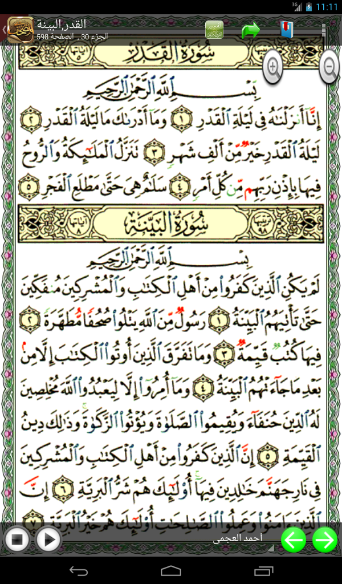 11:11
القدر,البينة
الجزء 30 , الصفحة 598
سُورَةُ القَدْرِ
بِسْمِ اللَّهِ الرَّحْمَٰنِ الرَّحِيمِ
إِنَّا أَنزَلْنَاهُ فِي لَيْلَةِ الْقَدْرِ ١ وَمَا أَدْرَاكَ مَا لَيْلَةُ الْقَدْرِ ٢
لَيْلَةُ الْقَدْرِ خَيْرٌ مِّنْ أَلْفِ شَهْرٍ ٣ تَنَزَّلُ الْمَلَائِكَةُ وَالرُّوحُ
فِيهَا بِإِذْنِ رَبِّهِم مِّن كُلِّ أَمْرٍ ٤ سَلَامٌ هِيَ حَتَّىٰ مَطْلَعِ الْفَجْرِ ٥
سُورَةُ البَيِّنَةِ
بِسْمِ اللَّهِ الرَّحْمَٰنِ الرَّحِيمِ
لَمْ يَكُنِ الَّذِينَ كَفَرُوا مِنْ أَهْلِ الْكِتَابِ وَالْمُشْرِكِينَ مُنفَكِّينَ
حَتَّىٰ تَأْتِيَهُمُ الْبَيِّنَةُ ١ رَسُولٌ مِّنَ اللَّهِ يَتْلُو صُحُفًا مُّطَهَّرَةً ٢
فِيهَا كُتُبٌ قَيِّمَةٌ ٣ وَمَا تَفَرَّقَ الَّذِينَ أُوتُوا الْكِتَابَ إِلَّا مِن
بَعْدِ مَا جَاءَتْهُمُ الْبَيِّنَةُ ٤ وَمَا أُمِرُوا إِلَّا لِيَعْبُدُوا اللَّهَ مُخْلِصِينَ
لَهُ الدِّينَ حُنَفَاءَ وَيُقِيمُوا الصَّلَوٰةَ وَيُؤْتُوا الزَّكَوٰةَ وَذَٰلِكَ دِينُ
الْقَيِّمَةِ ٥ إِنَّ الَّذِينَ كَفَرُوا مِنْ أَهْلِ الْكِتَابِ وَالْمُشْرِكِينَ
فِي نَارِ جَهَنَّمَ خَالِدِينَ فِيهَا أُولَٰئِكَ هُمْ شَرُّ الْبَرِيَّةِ ٦ إِنَّ
الَّذِينَ آمَنُوا وَعَمِلُوا الصَّالِحَاتِ أُولَٰئِكَ هُمْ خَيْرُ الْبَرِيَّةِ ٧
احمد العجمى